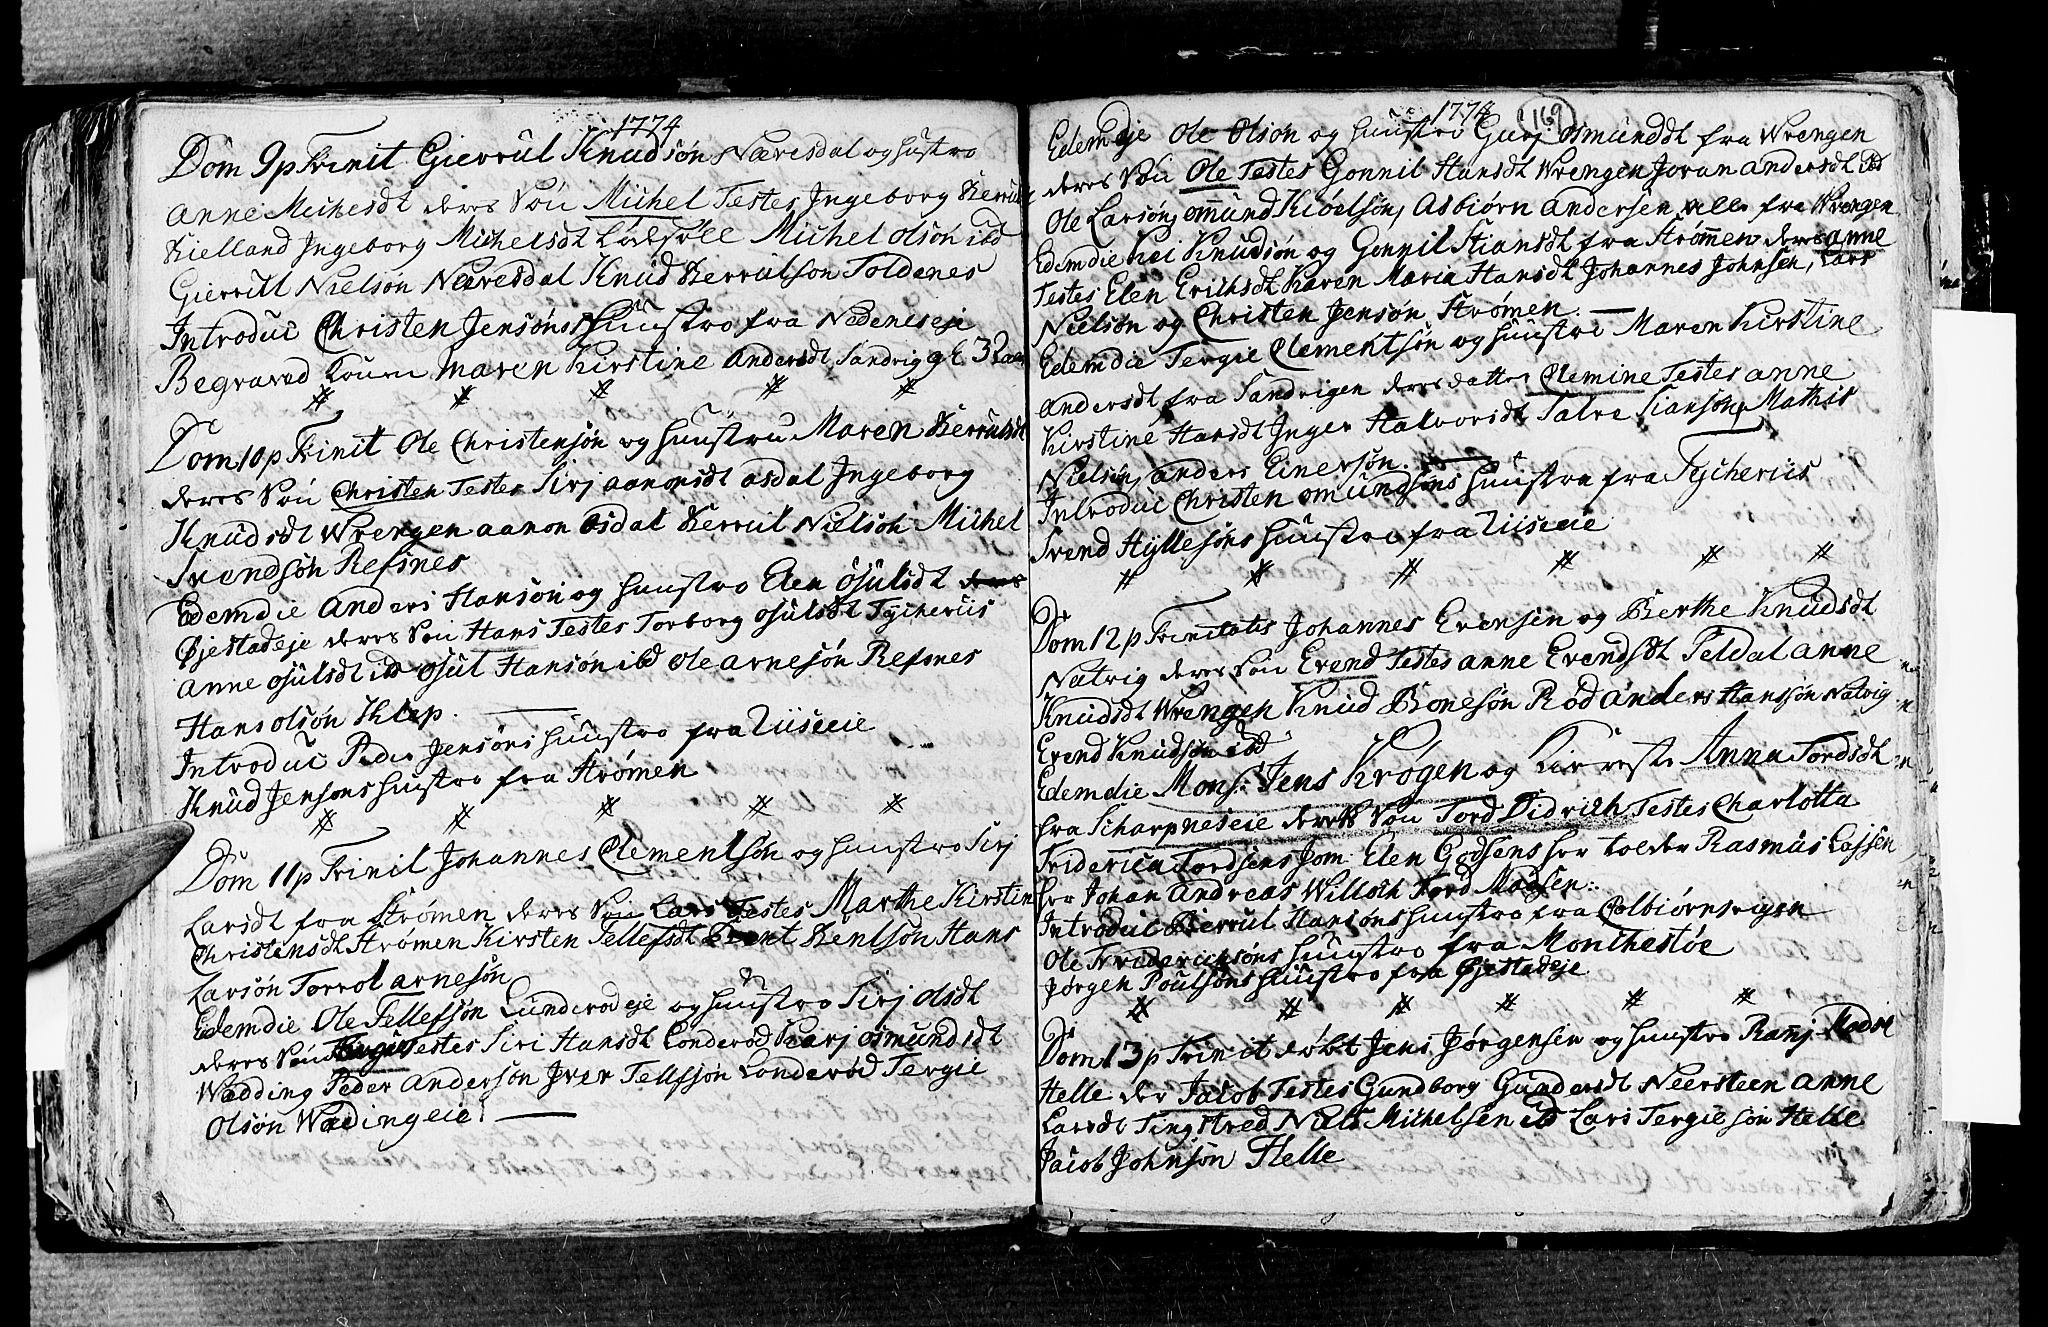 1774
Dom 9 p Trinit Gierrul Knudsøn Næresdal og hustro
Anne Michelsdt deres Søn Michel Testes Ingeborg Gerrulsdt
Kielland Ingeborg Michelsdt Michel Olsøn ibd
Gierrill Nielsøn Næresdal Knud Gerrulson Toldenes
Introduc Christen Jensøns Huustro fra Nedeneseje
Begraved Maren Kirstine Andersdt Sandrig gl. 3
# # # # #
Dom 10 p Trinit Ole Christensøn og huustru Maren Gerrulsdt
deres Søn Christen Testes Sirj Aanonsdt Asdal Ingeborg
Knudsdt Wrengen Aanon Asdal Gerrul Nielsøn Michel
Svendsøn Refsnes
Edemdie Anders Hansøn og huustro Elen Osulsdt
Øjestadeje deres Søn Hans Testes Torborg Osulsdt Tÿcheriis
Anne Osulsdt ibd Osul Hansøn ibd Ole Arnesøn Refsnes
Hans Olsøn Klep.
Introduc Peder Jensøns huustro fra Viiseeie
Knud Jensøns hustro fra Strømen
# # # # #
Dom 11 p Trinit Johannes Clementsøn og huustro Sirj
Larsdt fra Strømen deres Søn Lars Testes Marthe Kirstin
Christensdt Strømen Kirsten Tellefsdt Gent Gentsøn Hans
Larsøn Torrol Arnesøn
Edemdie Ole Tellefsøn Lunderødeje og huustro Sirj Olsdt
deres Søn Tergie Testes Siri Hansdt Londerød Karj Osmundsdt
Wædding Peder Andersøn Iver Tellfsøn Londerød Tergie
Olsøn Wædingeie
1774
169
Edemdie Ole Olsøn og huustro Gurj Osmunddt fra Wrengen
deres Søn Ole Testes Gonnil Hansdt Wrengen Joran Andersdt ibd
Ole Larsøn, Omund Kiøelsøn, Asbiørn Andersen alle fra Wrengen
Edemdie Kei Knudsøn og Gonnil Stiansdt fra Strømen deres Anne
Testes Elen Erichsdt Karen Maria Hansdt Johannes Johnsen, Lars
Nielsøn og Christen Jensøn Strømen.
Edemdie Tergie Clementsøn og huustro Maren Kirstine
Andersdt fra Sandrigen deres datter Clemine Testes Anne
Kirstine Hansdt Inger Halvorsdt Salve Stiansøn, Mathis
Nielsøn, Anders Einersøn.
Introduc Christen Omundsøns huustro fra Tÿcheriis
Svend Hÿllesøns huustro fra Viiseeie
# # # # # #
Dom 12 p Trinitatis Johannes Evensen og Berthe Knudsdt
Natvig deres Søn Evend Testes Anne Evendsdt Teldal Anne
Knudsdt Wrengen Knud Bonesøn Rød Anders Hansøn Natvig
Evend Knudsøn ibd
Edemdie Mons: Jens Krøgen og Kiereste Anna Tordsdt
fra Scharpneseie deres Søn Tord Didrich Testes Charlotta
Friderica Tordsens Jom: Elen Godsens hr Tolder Rasmus Lassen
hr Johan Andreas Willoch Tord Madsen.
Introduc Gierrul Hansøns huustro fra Colbiørnsvigen
Ole Friderichsøns huustro fra Monchestøe
Jørgen Poulsøns huustro fra Øjestadeje
# # # # # #
Dom 13 p Trinit døbt Jens Jørgensen og huustro Ranj
Helle der Jacob Testes Gundborg Gundersdt Neersteen Anne
Larsdt Tingstved Niels Michelsen ibd Lars Tergiesøn Helle
Jacob Johnsøn Helle